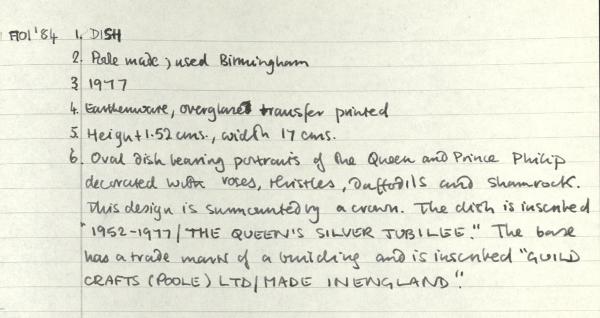 F101'84 1. DISH
2. Poole made; used Birmingham
3. 1977
4. Earthenware, overglaze transfer printed
5. Height 1.52 cms., width 17 cms.
6. Oval dish bearing portraits of the Queen and Prince Philip
decorated with roses, thistles, daffodils and shamrock.
This design is surmounted by a crown. The dish is inscribed
"1952-1977/THE QUEEN'S SILVER JUBILEE." The base
has a trade mark of a building and is inscribed "GUILD
CRAFTS (POOLE) LTD/MADE IN ENGLAND".